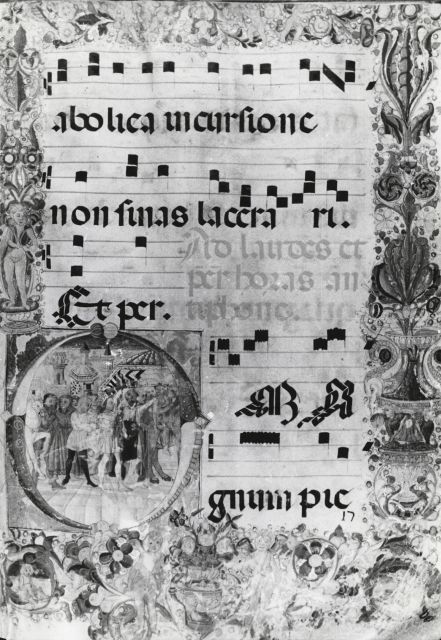 abolica incursione
non sinas lacera ri.
Ad laudes et
per horas an
tiphona.
Et per.
gnum pie
17